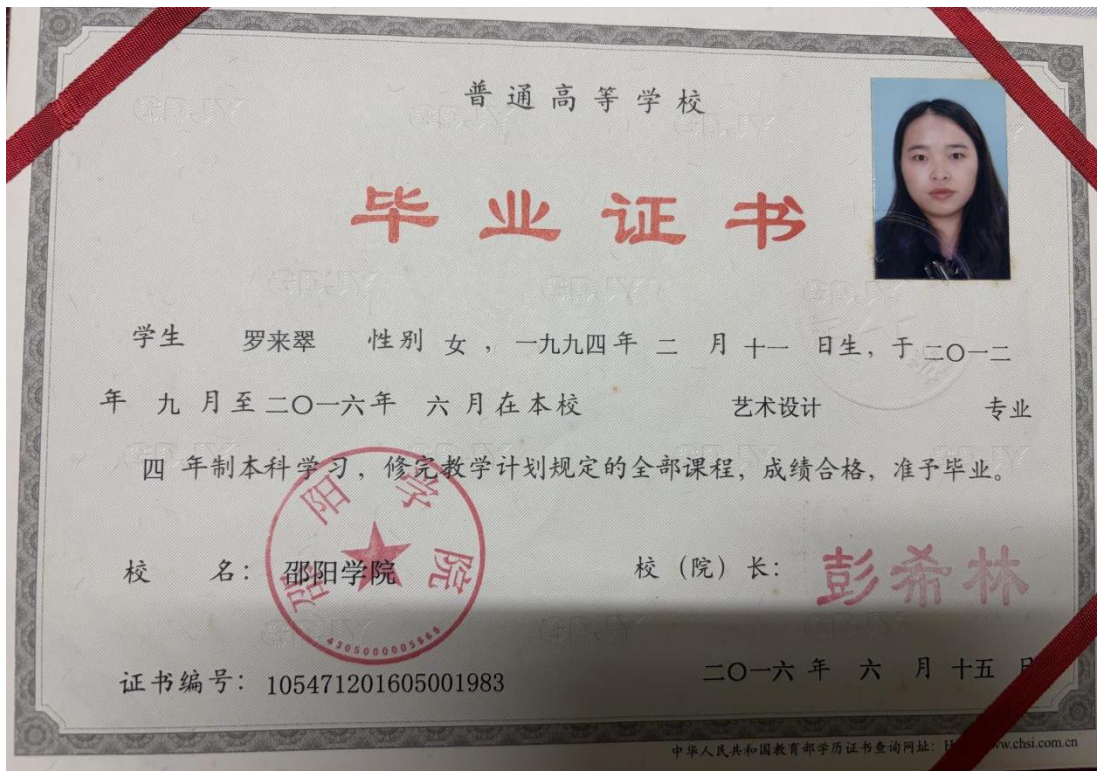 普通高等学校
毕业证书
学生 罗来翠 性别 女 ，一九九四年 二 月 十一 日生，于 二〇一二
年 九 月至二〇一六年 六 月在本校 艺术设计 专业
四 年制本科学习，修完教学计划规定的全部课程，成绩合格，准予毕业。
邵阳学院
4305000005565
校 名：邵阳学院 校（院）长：彭希林
证书编号：105471201605001983 二〇一六 年 六 月 十五
中华人民共和国教育部学历证书查询网址： www.chsi.com.cn